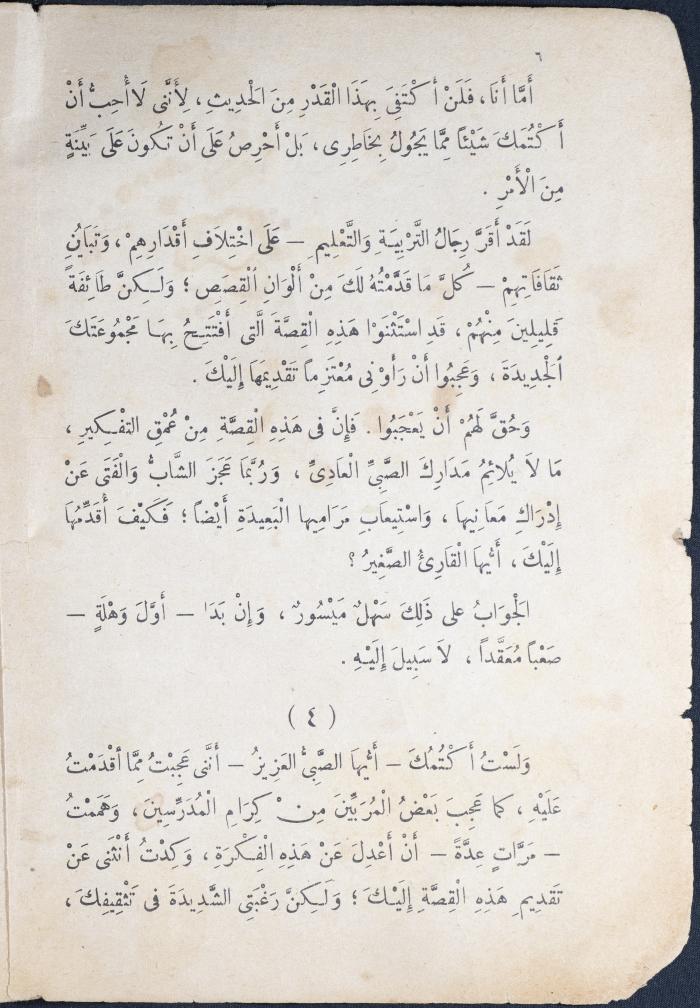 ٦
أَمَّا أَنَا، فَلَنْ أَكْتَفِىَ بِهَذَا الْقَدْرِ مِنَ الْحَدِيثِ، لِأَنَّنِى لَا أُحِبُّ أَنْ
أَكْتُمَكَ شَيْئاً مِمَّا يَجُولُ بِخَاطِرِى، بَلْ أَحْرِصُ عَلَى أَنْ تَكُونَ عَلَى بَيِّنَةٍ
مِنَ الْأَمْرِ .
لَقَدْ أَقَرَّ رِجَالُ التَّرْبِيَةِ وَالتَّعْلِيمِ – عَلَى اخْتِلَافِ أَقْدَارِهِمْ، وَتَبَايُنِ
ثَقَافَاتِهِمْ – كُلَّ مَا قَدَّمْتُهُ لَكَ مِنْ أَلْوَانِ الْقِصَصِ؛ وَلَـكِنَّ طَائِفَةً
قَلِيلِينَ مِنْهُمْ، قَدِ اسْتَثْنَوْا هَذِهِ الْقِصَّةَ الَّتِى أَفْتَتِـحُ بِهَـا مَجْمُوعَتَكَ
الْجَدِيدَةَ، وَعَجِبُوا أَنْ رَأَوْنِى مُعْتَزِماً تَقْدِيمَهَا إِلَيْكَ .
وَحُقَّ لَهُمْ أَنْ يَعْجَبُوا . فَإِنَّ فِى هَذِهِ الْقِصَّةِ مِنْ عُمْقِ التَّفْـكِيرِ،
مَا لَا يُلَائِمُ مَدَارِكَ الصَّبِىِّ الْعَادِىِّ، وَرُبَّمَا عَجَزَ الشَّابُّ وَالْفَتَى عَنْ
إِدْرَاكِ مَعَانِيهَا، وَاسْتِيعَابِ مَرَامِيهَا الْبَعِيدَةِ أَيْضاً؛ فَكَيْفَ أُقَدِّمُهَا
إِلَيْكَ، أَيُّهَا الْقَارِئُ الصَّغِيرُ؟
الْجَوَابُ عَلَى ذَلِكَ سَهْلٌ مَيْسُورٌ، وَإِنْ بَدَا – أَوَّلَ وَهْلَةٍ –
صَعْباً مُعَقَّداً، لَا سَبِيلَ إِلَيْـهِ .
( ٤ )
وَلَسْتُ أَكْتُمُكَ – أَيُّهَا الصَّبِىُّ العَزِيزُ – أَنَّنِى عَجِبْتُ مِمَّا أَقْدَمْتُ
عَلَيْهِ، كَمَا عَجِبَ بَعْضُ الْمُرَبِّينَ مِنْ كِرَامِ الْمُدَرِّسِينَ، وَهَمَمْتُ
– مَرَّاتٍ عِدَّةً – أَنْ أَعْدِلَ عَنْ هَذِهِ الْفِـكْرَةِ، وَكِدْتُ أَنْثَنِى عَنْ
تَقْدِيمِ هَذِهِ الْقِصَّةِ إِلَيْـكَ؛ وَلَـكِنَّ رَغْبَتِى الشَّدِيدَةَ فِى تَثْقِيفِكَ،